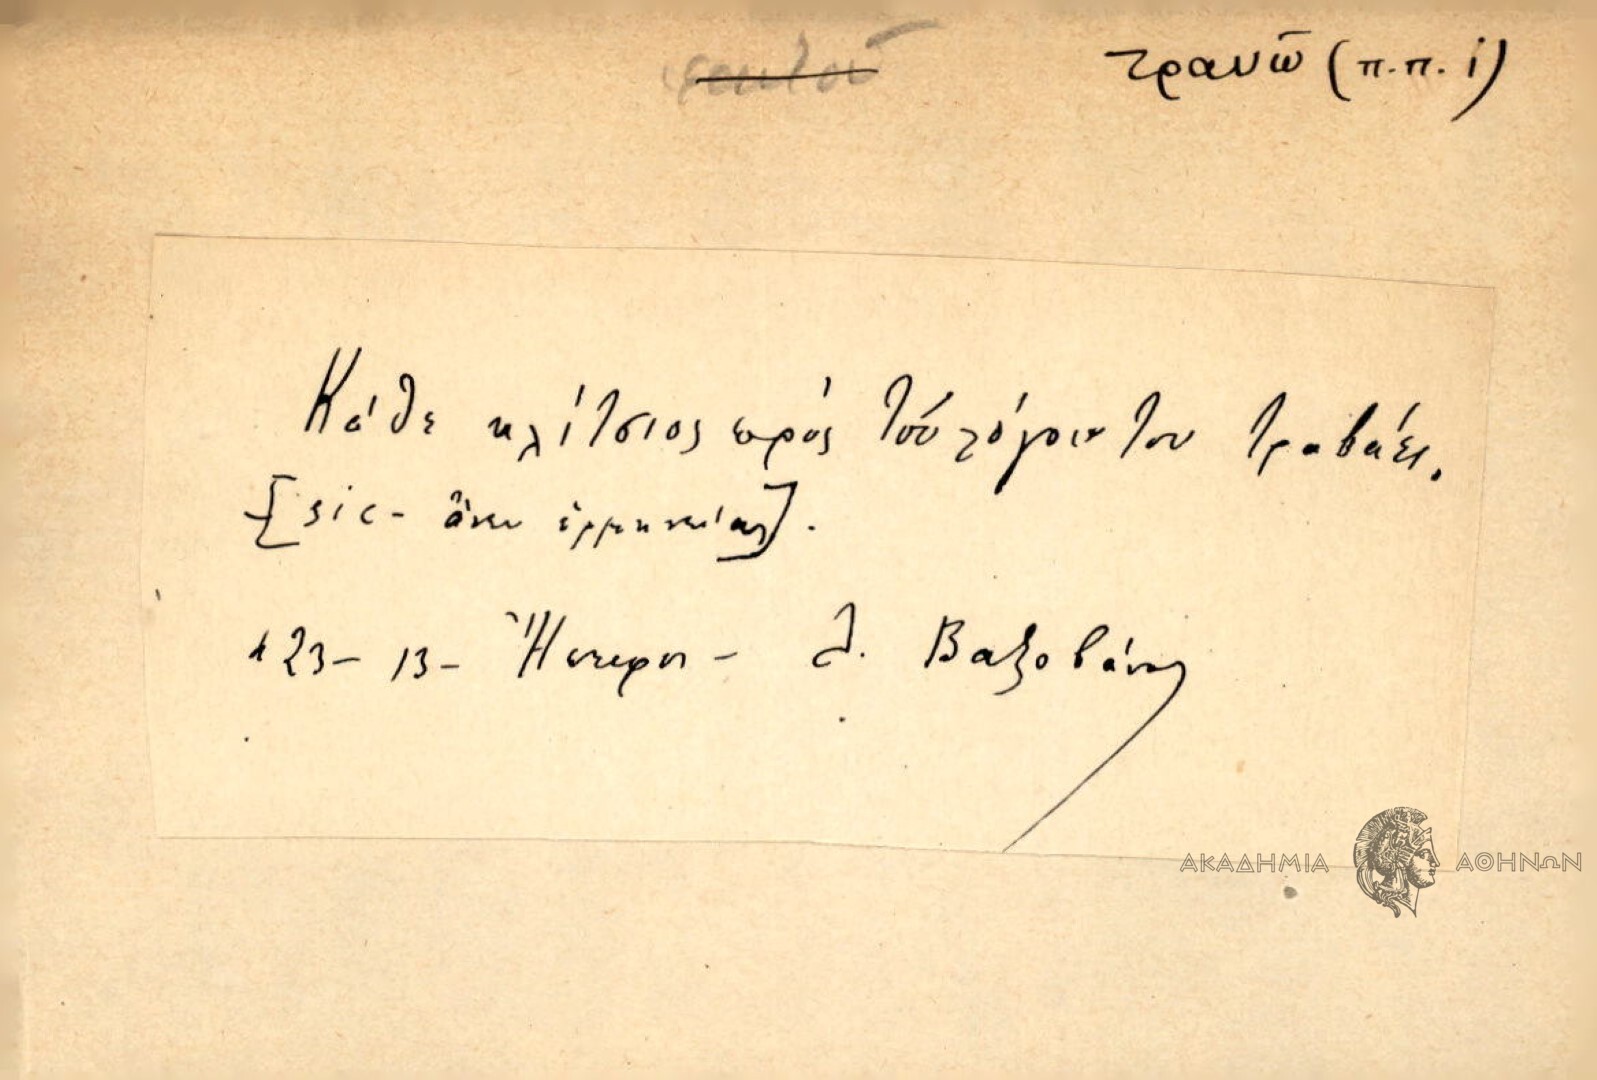 τρανῶ (π.π. ί)
Κάθε κλίτσιος πρός τοὺ λόγοιν του τραβάει.
[sic - ἄνευ ἑρμηνείας].
123 - 13 - Ἤπειρος - Δ. Βαζοβάνης
ΑΚΑΔΗΜΙΑ ΑΘΗΝΩΝ